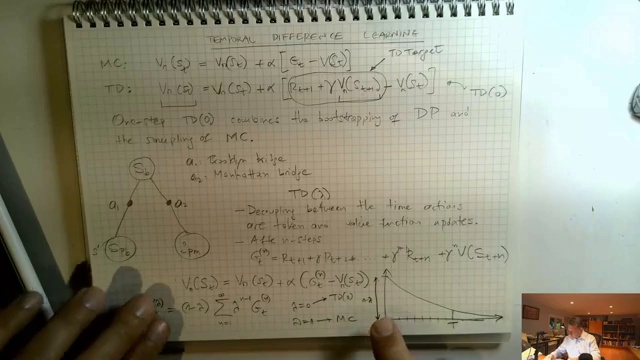 TEMPORAL DIFFERENCE LEARNING
MC: Vπ(St) = Vπ(St) + α [Gt - V(St)]
TD Target
TD: Vπ(St) = Vπ(St) + α [Rt+1 + γ Vπ(St+1) - Vπ(St)]
TD(0)
One-step TD(0) combines the bootstrapping of DP and
the sampling of MC.
a1: Brooklyn bridge
a2: Manhattan bridge
a1
a2
TD(λ)
- Decoupling between the time actions
are taken and value function updates.
- After n-steps
Vπ(St) = Vπ(St) + α (Gt(n) - Vπ(St))
λ=0 → TD(0)
λ=1 → MC
T